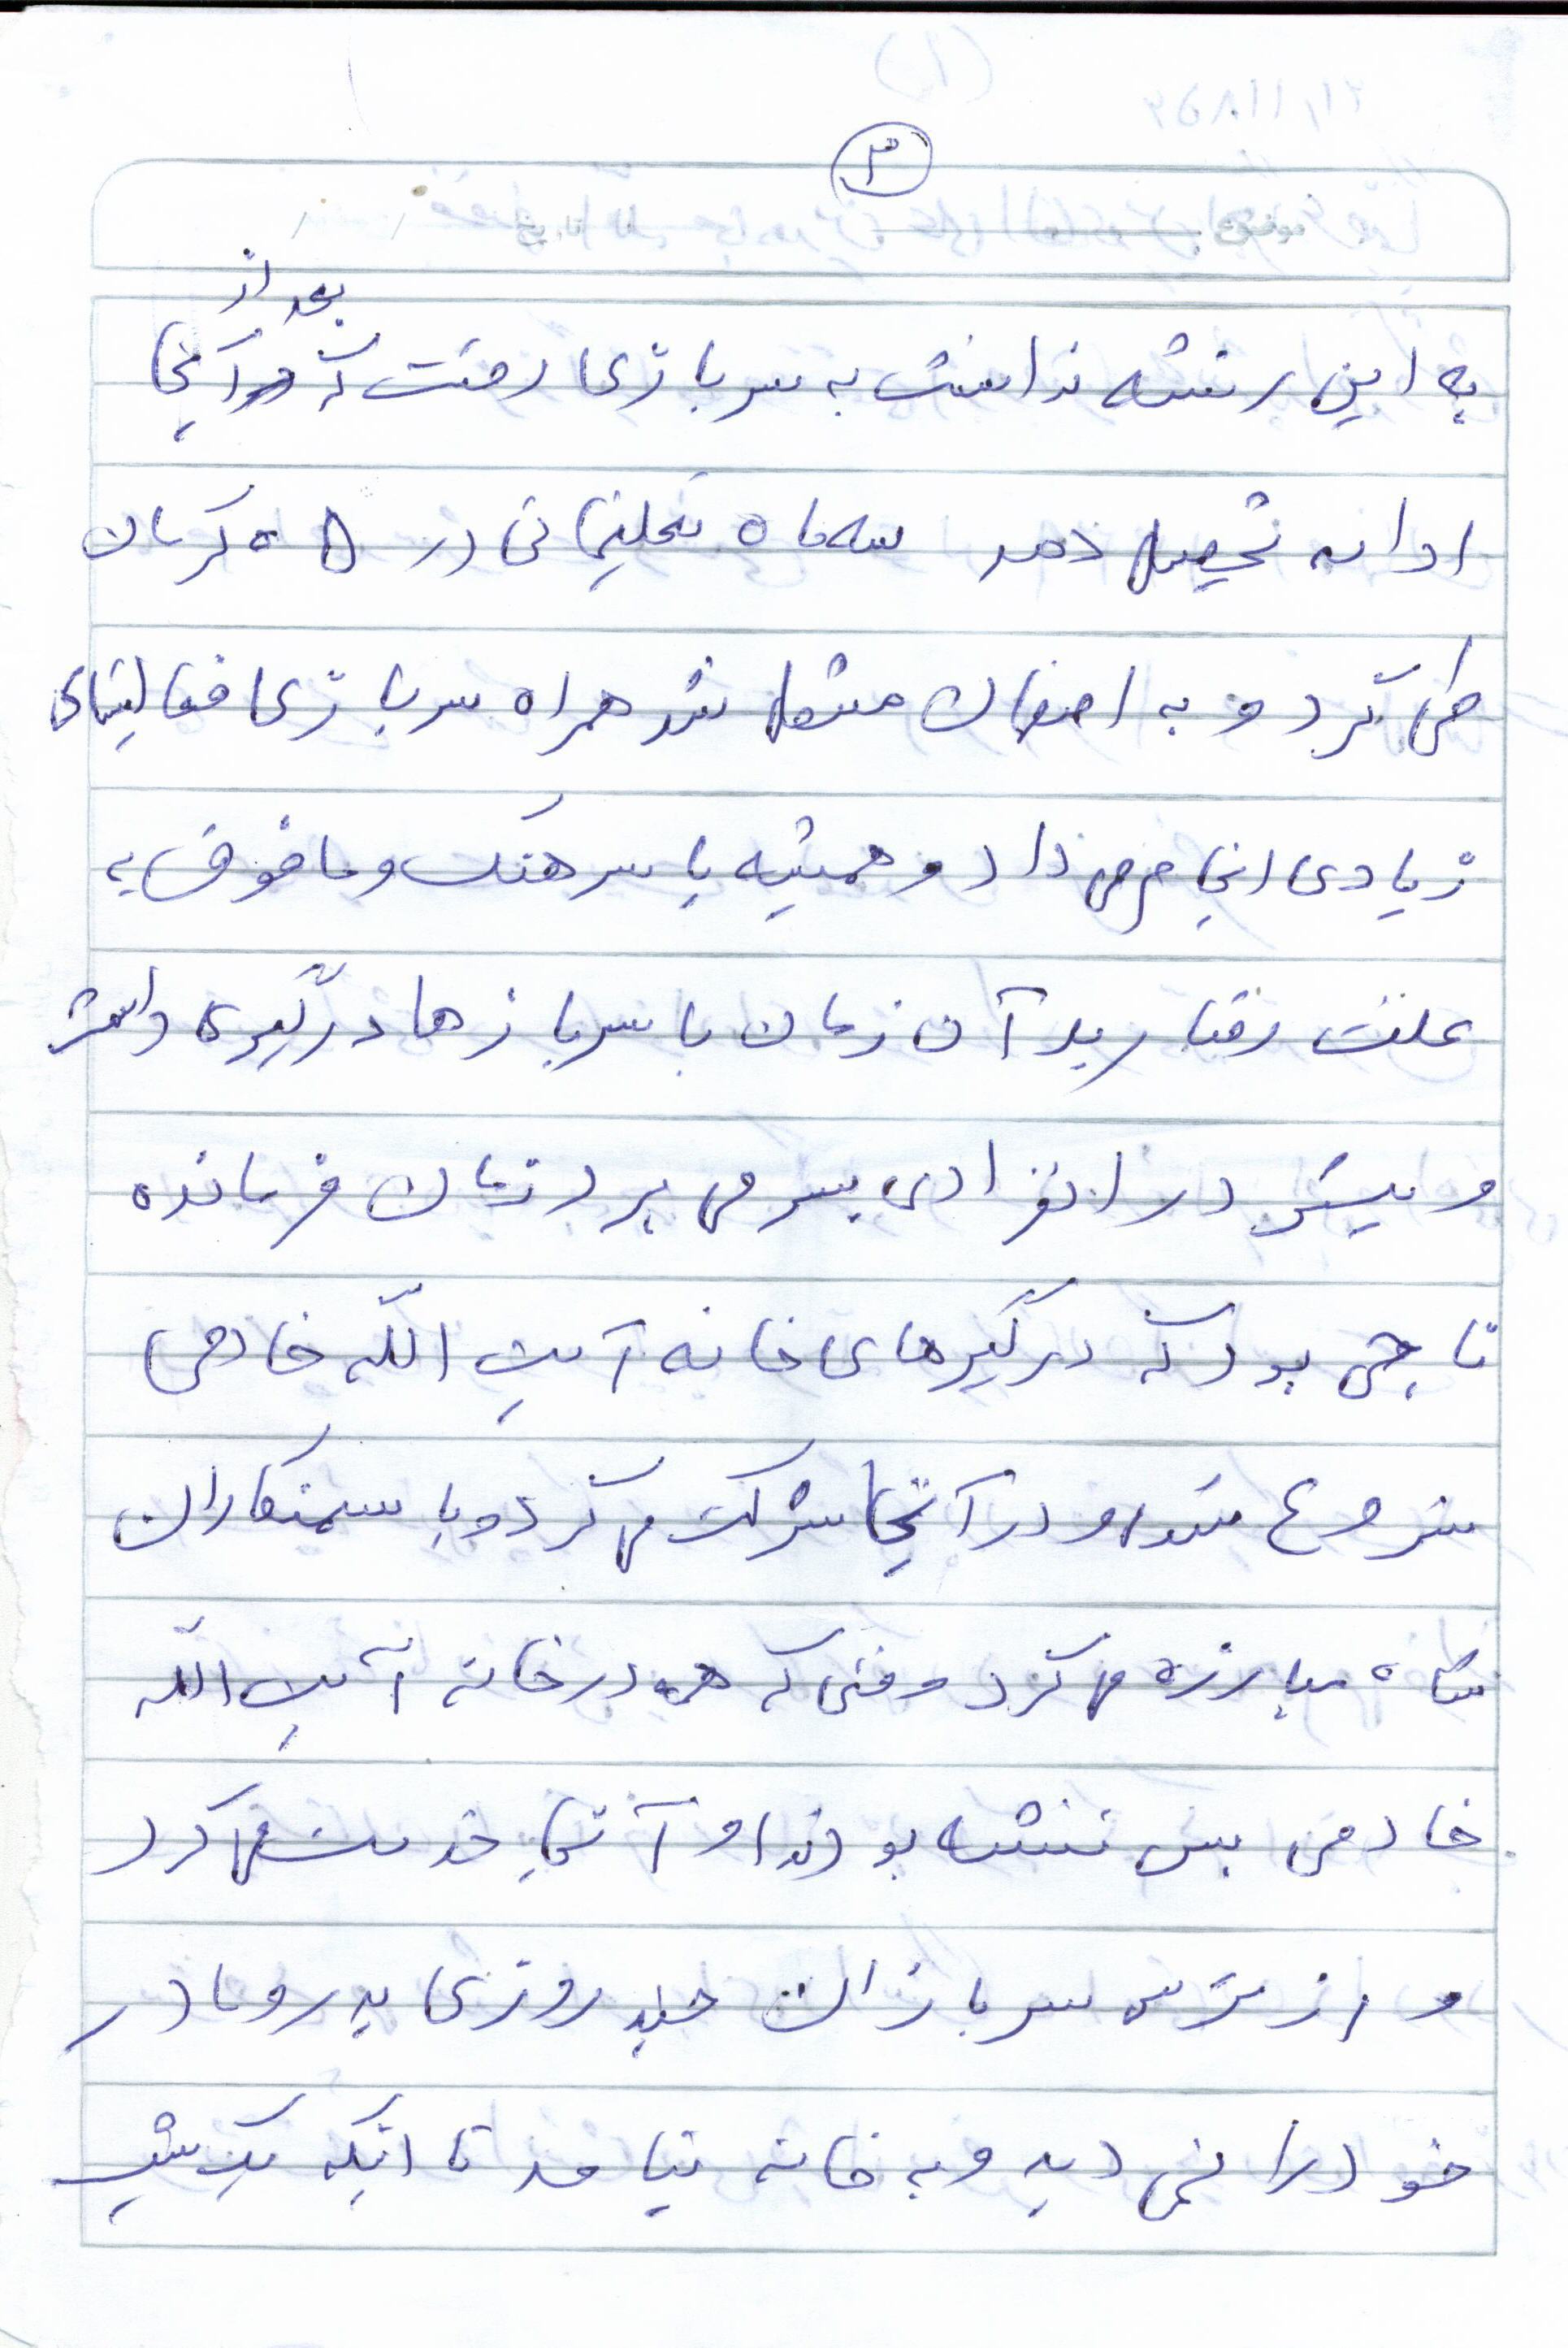 ۳
بعد از
به این رشته نداشت به سربازی رفت که در آنجا
ادامه تحصیل دهد سه ماه تعلیماتی در ۰۵ کرمان
طی کرد و به اصفهان منتقل شد همراه سربازی فعالیتهای
زیادی انجام می داد و همیشه با سرهنگ و مافوق به
علت رفتار بد آن زمان با سربازها درگیری داشت
و بیشتر در انفرادی بسر می برد زمان فرمانده
ناجی بود که درگیرهای خانه آیت الله خادمی
شروع شد او در آنجا شرکت می کرد و با ستمکاران
شاه مبارزه می کرد وقتی که همه در خانه آیت الله
خادمی بس نشسته بودند او آنجا خدمت می کرد
و از ترس سربازان چند روزی پدر و مادر
خود را نمی دید و به خانه نیامد تا اینکه یک شب